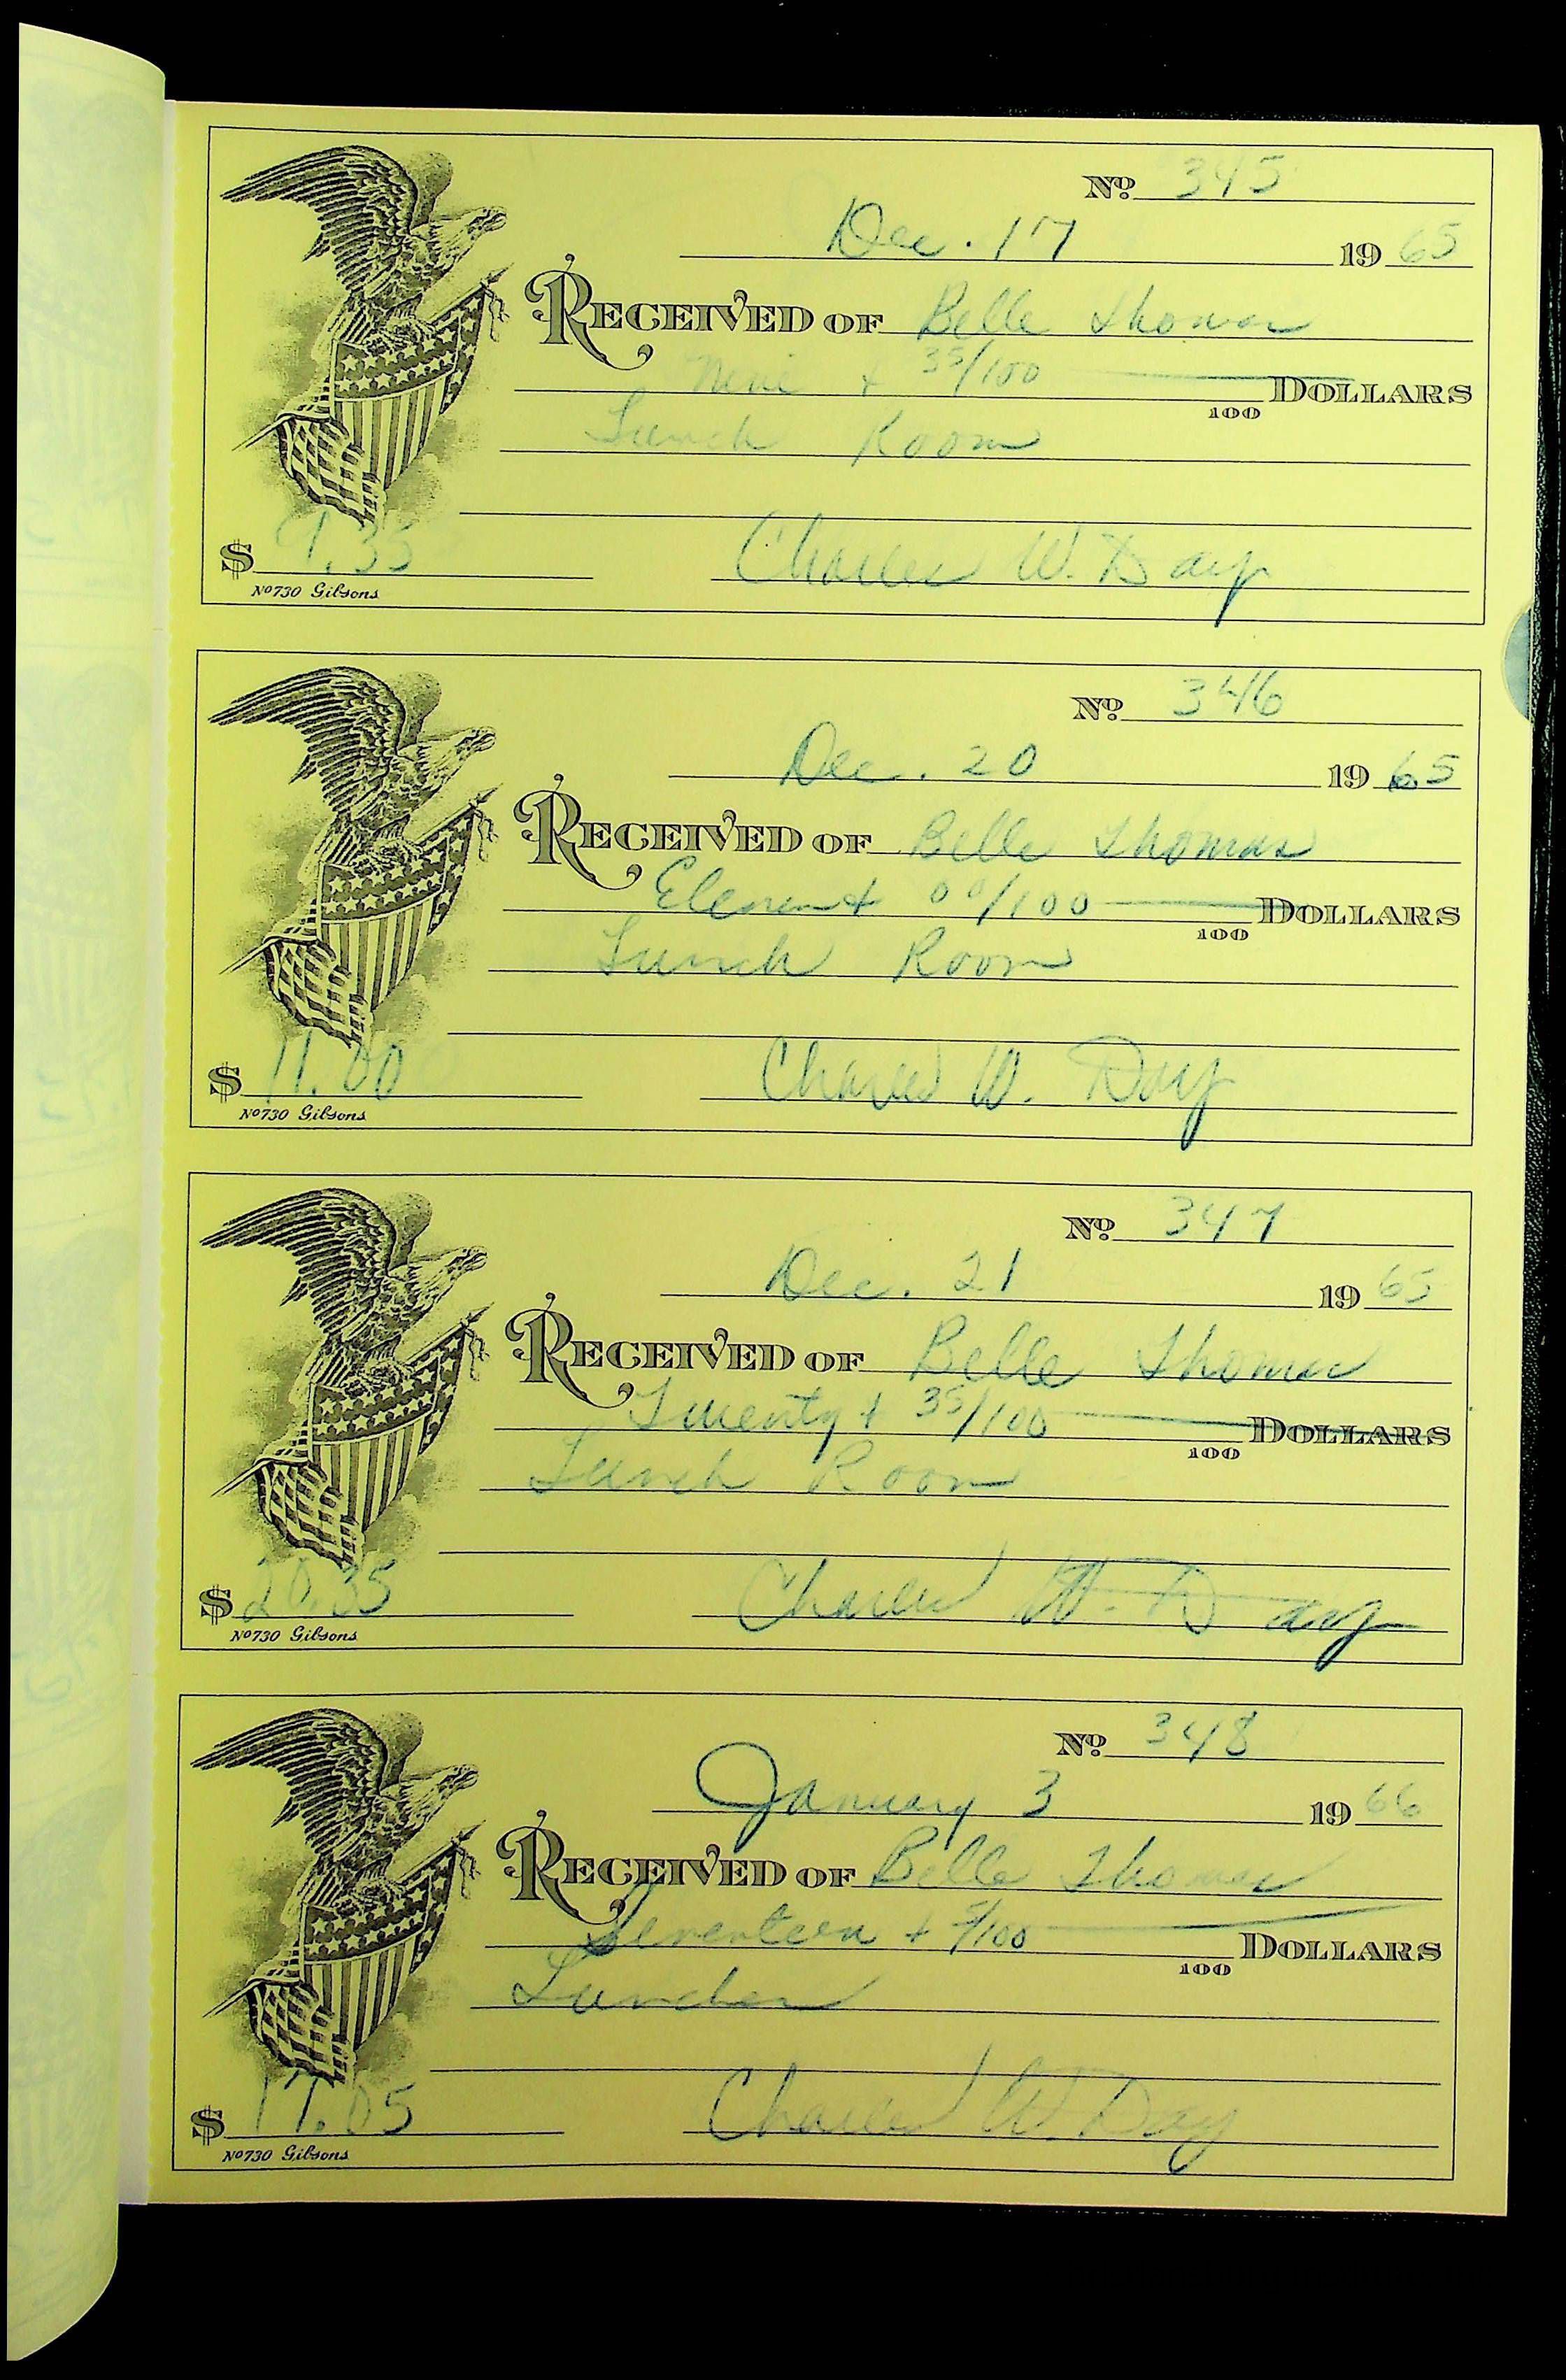 No. 345
Dec. 17 1965
RECEIVED OF Belle Thomas
Nine + 35/100 DOLLARS
100
Lunch Room
$ 9.35 Charles W. Day
No 730 Gibsons
No. 346
Dec. 20 1965
RECEIVED OF Belle Thomas
Eleven + 00/100 DOLLARS
100
Lunch Room
$ 11.00 Charles W. Day
No 730 Gibsons
No. 347
Dec. 21 1965
RECEIVED OF Belle Thomas
Twenty + 35/100 DOLLARS
100
Lunch Room
$ 20.35 Charles W. Day
No 730 Gibsons
No. 348
January 3 1966
RECEIVED OF Belle Thomas
Seventeen + 5/100 DOLLARS
100
Lunches
$ 17.05 Charles W. Day
No 730 Gibsons